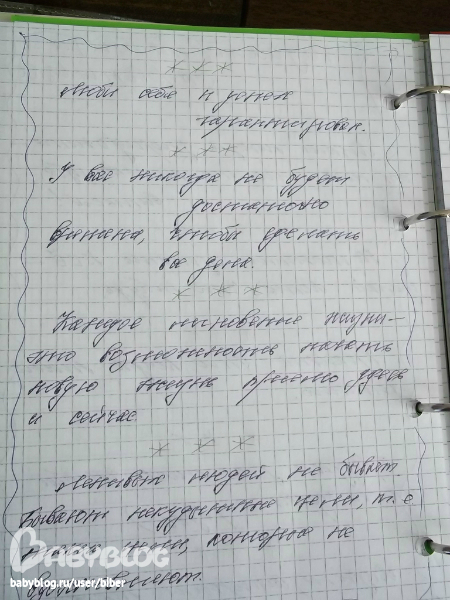 * * *
Люби себя и успех
гарантирован.
* * *
У вас никогда не будет
достаточно
времени, чтобы сделать
все дела.
* * *
Каждое мгновение жизни –
это возможность начать
новую жизнь прямо здесь
и сейчас.
* * *
Ленивых людей не бывает.
Бывают некудышние цели, т.е
такие цели, которые не
вдохновляют.
BABYBLOG
babyblog.ru/user/biber